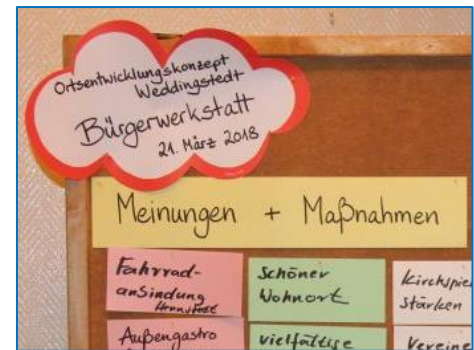 Ortsentwicklungskonzept
Weddingstedt
Bürgerwerkstatt
21. März 2018
Meinungen + Maßnahmen
Fahrrad-
anbindung
Schöner
Wohnort
stärken
Außengastro
vielfältige
Vereine